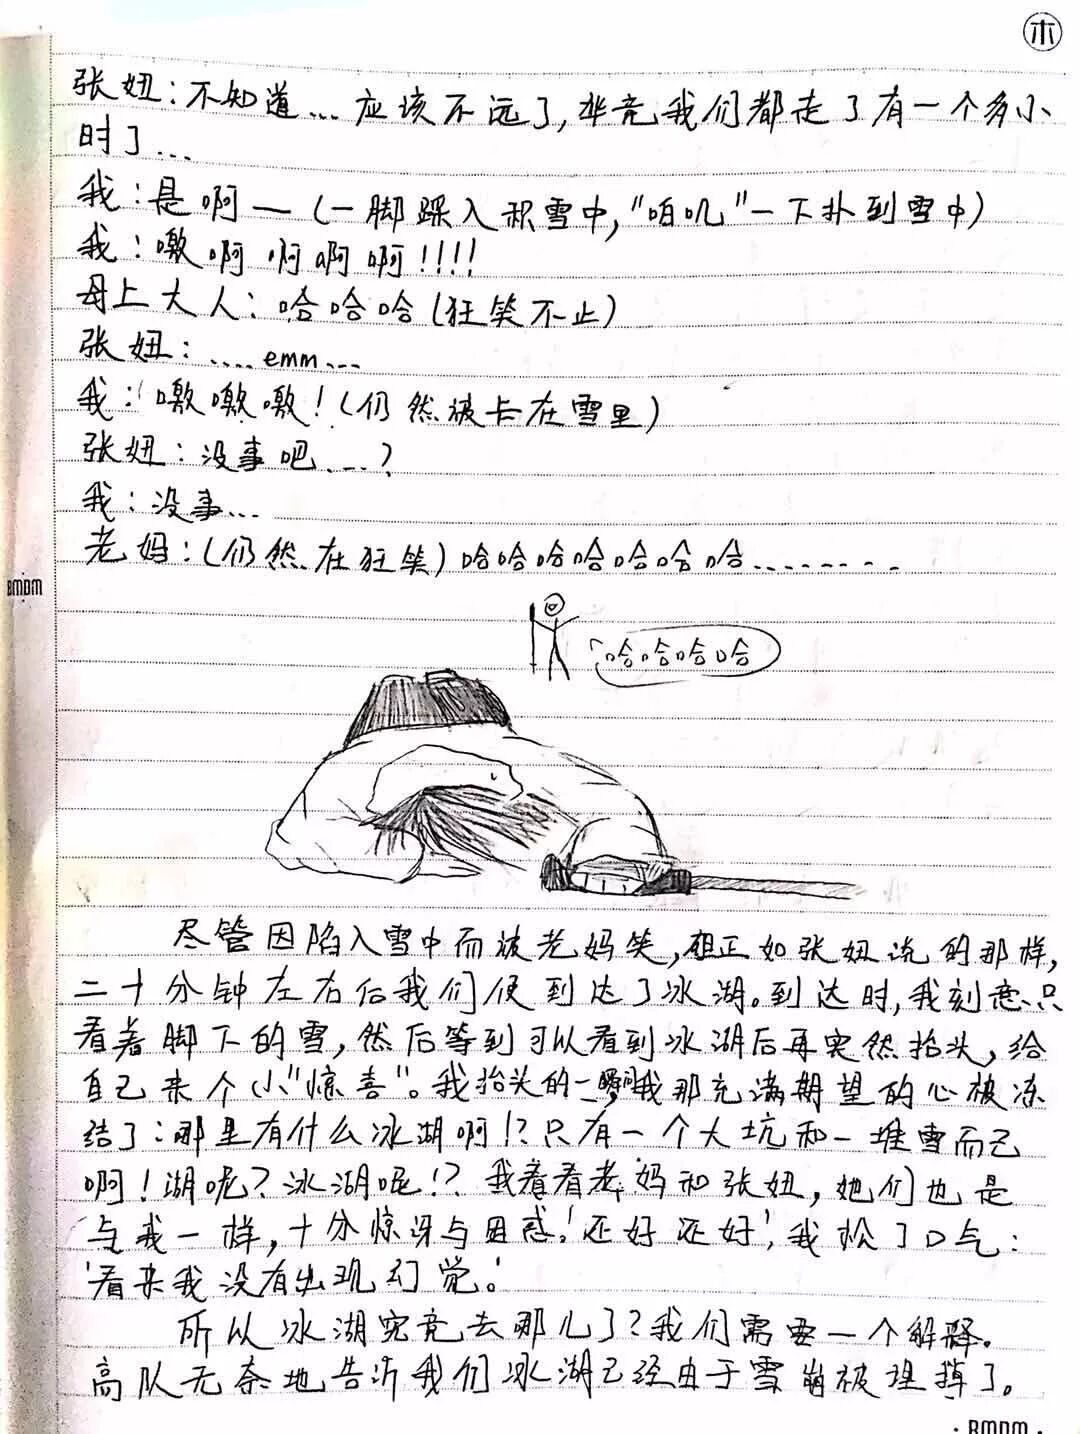 木
张妞：不知道... 应该不远了，毕竟我们都走了有一个多小
时了...
我：是啊—（一脚踩入积雪中，"咱叽"一下扑到雪中）
我：嗷啊啊啊啊！！！！
母上大人：哈哈哈（狂笑不止）
张妞：....emm...
我：嗷嗷嗷！（仍然被卡在雪里）
张妞：没事吧...？
我：没事...
老妈：（仍然在狂笑）哈哈哈哈哈哈哈........
BMDM
哈哈哈哈
尽管因陷入雪中而被老妈笑，但正如张妞说的那样，
二十分钟左右后我们便到达了冰湖。到达时，我刻意只
看着脚下的雪，然后等到可以看到冰湖后再突然抬头，给
自己来个小"惊喜"。我抬头的一瞬间，我那充满期望的心被冻
结了：哪里有什么冰湖啊！？只有一个大坑和一堆雪而已
啊！湖呢？冰湖呢！？我看看老妈和张妞，她们也是
与我一样，十分惊讶与困惑！'还好还好'，我松了口气：
'看来我没有出现幻觉。'
所以冰湖究竟去哪儿了？我们需要一个解释。
高队无奈地告诉我们冰湖已经由于雪崩被埋掉了。
·BMDM·